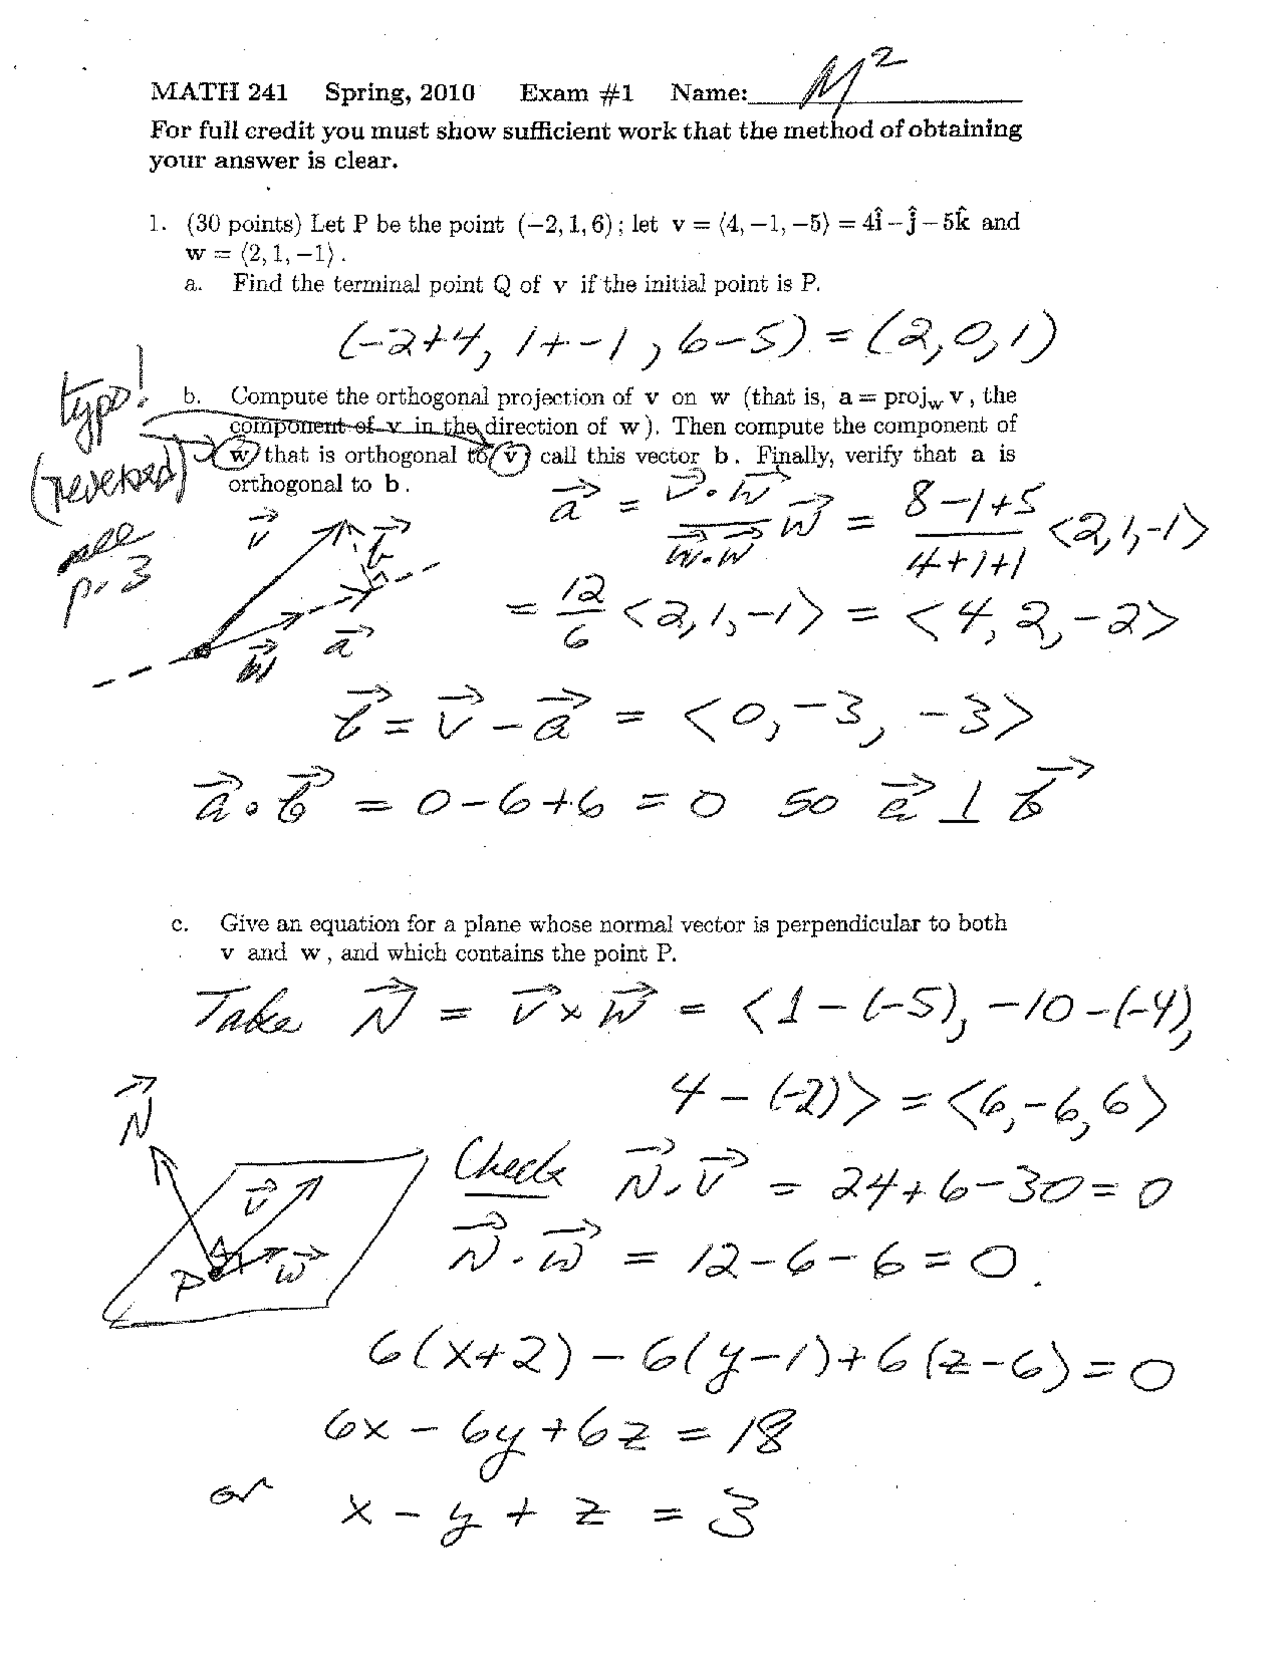 MATH 241 Spring, 2010 Exam #1 Name: M²
For full credit you must show sufficient work that the method of obtaining
your answer is clear.
1. (30 points) Let P be the point (−2, 1, 6); let v = ⟨4, −1, −5⟩ = 4î − ĵ − 5k̂ and
w = ⟨2, 1, −1⟩.
a. Find the terminal point Q of v if the initial point is P.
(-2+4, 1+-1, 6-5) = (2,0,1)
typo!
(reversed)
see
p. 3
b. Compute the orthogonal projection of v on w (that is, a = proj_w v, the
component of v in the direction of w). Then compute the component of
w that is orthogonal to v call this vector b. Finally, verify that a is
orthogonal to b.
a⃗ = (v⃗·w⃗)/(w⃗·w⃗) w⃗ = (8-1+5)/(4+1+1) <2,1,-1>
v⃗ b⃗
w⃗ a⃗
= 12/6 <2,1,-1> = <4,2,-2>
b⃗ = v⃗ - a⃗ = <0,-3,-3>
a⃗·b⃗ = 0-6+6 = 0 so a⃗ ⊥ b⃗
c. Give an equation for a plane whose normal vector is perpendicular to both
v and w, and which contains the point P.
Take N⃗ = v⃗ × w⃗ = <1-(-5), -10-(-4),
4-(-2)> = <6,-6,6>
N⃗
v⃗
P w⃗
Check N⃗·v⃗ = 24+6-30 = 0
N⃗·w⃗ = 12-6-6 = 0.
6(x+2)-6(y-1)+6(z-6) = 0
6x - 6y + 6z = 18
or x - y + z = 3